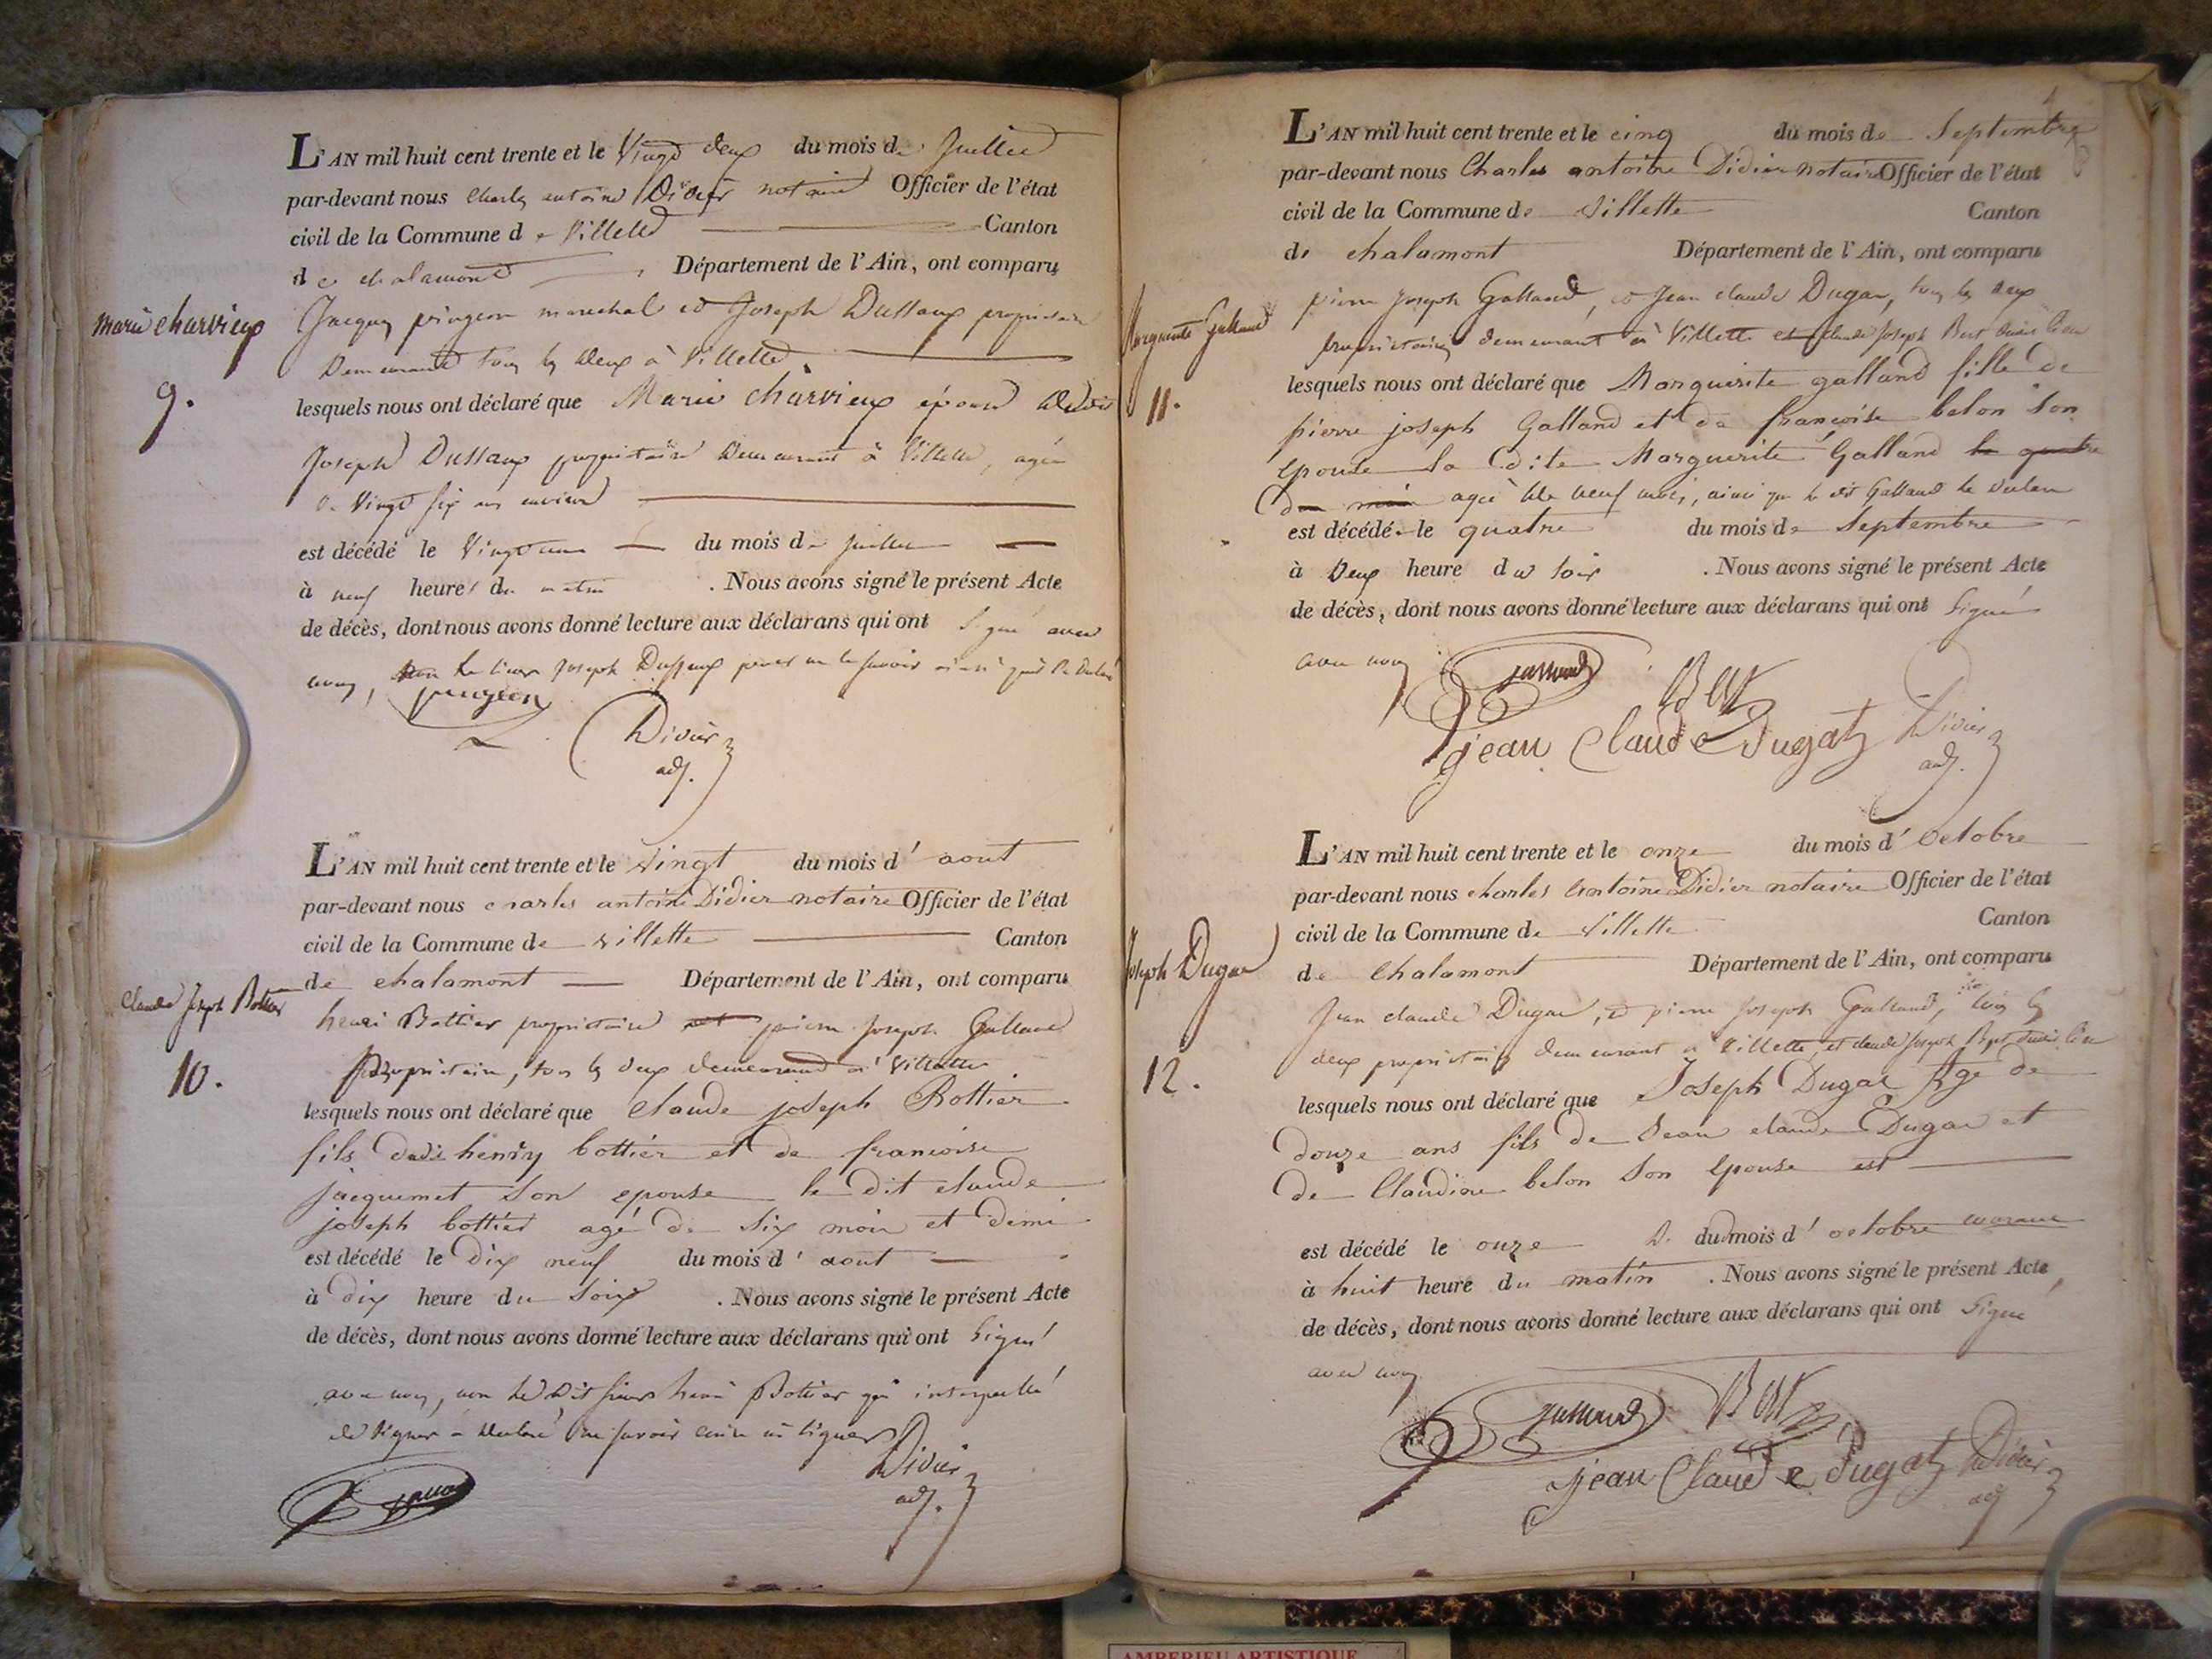 L'AN mil huit cent trente et le Vingt deux du mois de Juillet
par-devant nous Charles antoine Didier notaire Officier de l'état
civil de la Commune de Villette Canton
de chalamont, Département de l'Ain, ont comparu
Jacques pingeon marechal et Joseph Dussaux propriétaire
Demeurant tous les deux à Villette
Marie charvieux
9.
lesquels nous ont déclaré que Marie charvieux épouse dudit
Joseph Dussaux propriétaire Demeurant à Villette, agée
de Vingt six ans environ
est décédé le Vingt un du mois de juillet
à neuf heures du matin . Nous avons signé le présent Acte
de décès, dont nous avons donné lecture aux déclarans qui ont signé avec
nous, non le sieur Joseph Dussaux pour ne le savoir ainsi qu'il l'a déclaré
pingeon
Didier
adj.
L'AN mil huit cent trente et le vingt du mois d' aout
par-devant nous charles antoine Didier notaire Officier de l'état
civil de la Commune de villette Canton
de chalamont Département de l'Ain, ont comparu
Claude Joseph Bottier
10.
henri Bottier propriétaire et pierre Joseph Galland
propriétaire, tous les deux demeurant à Villette
lesquels nous ont déclaré que claude joseph Bottier
fils dudi henry bottier et de francoise
jacquemet son epouse le dit claude
joseph bottier agé de six mois et demi
est décédé le dix neuf du mois d' aout
à dix heure du soir . Nous avons signé le présent Acte
de décès, dont nous avons donné lecture aux déclarans qui ont signé
avec nous, non le dit sieur henri Bottier qui interpellé
de signer a déclaré ne savoir écrire ni signer
Didier
adj.
L'AN mil huit cent trente et le cinq du mois de Septembre
par-devant nous Charles antoine Didier notaire Officier de l'état
civil de la Commune de Villette Canton
de chalamont Département de l'Ain, ont comparu
pierre Joseph Galland, et Jean claude Dugas, tous les deux
propriétaires demeurant à Villette et claude Joseph Bert
Marguerite Galland
11.
lesquels nous ont déclaré que Marguerite galland fille de
pierre joseph Galland et de françoise belon son
epouse la dite Marguerite Galland le quatre
du mois agée de neuf mois, ainsi que le dit Galland le
est décédé le quatre du mois de Septembre
à Deux heure du soir . Nous avons signé le présent Acte
de décès, dont nous avons donné lecture aux déclarans qui ont signé
avec nous
galland Bert
jean Claude Dugas Didier
adj.
L'AN mil huit cent trente et le onze du mois d' Octobre
par-devant nous charles Antoine Didier notaire Officier de l'état
civil de la Commune de Villette Canton
de Chalamont Département de l'Ain, ont comparu
Joseph Dugas
12.
Jean claude Dugas, et pierre Joseph Galland, tous les
deux propriétaires demeurant à Villette, et claude Joseph Bert
lesquels nous ont déclaré que Joseph Dugas Age de
douze ans fils de Jean claude Dugas et
de Claudine belon son epouse est
est décédé le onze du mois d' octobre courant
à huit heure du matin . Nous avons signé le présent Acte
de décès, dont nous avons donné lecture aux déclarans qui ont signé
avec nous
galland Bert
jean Claude Dugas Didier
adj
AMBERIEU ARTISTIQUE